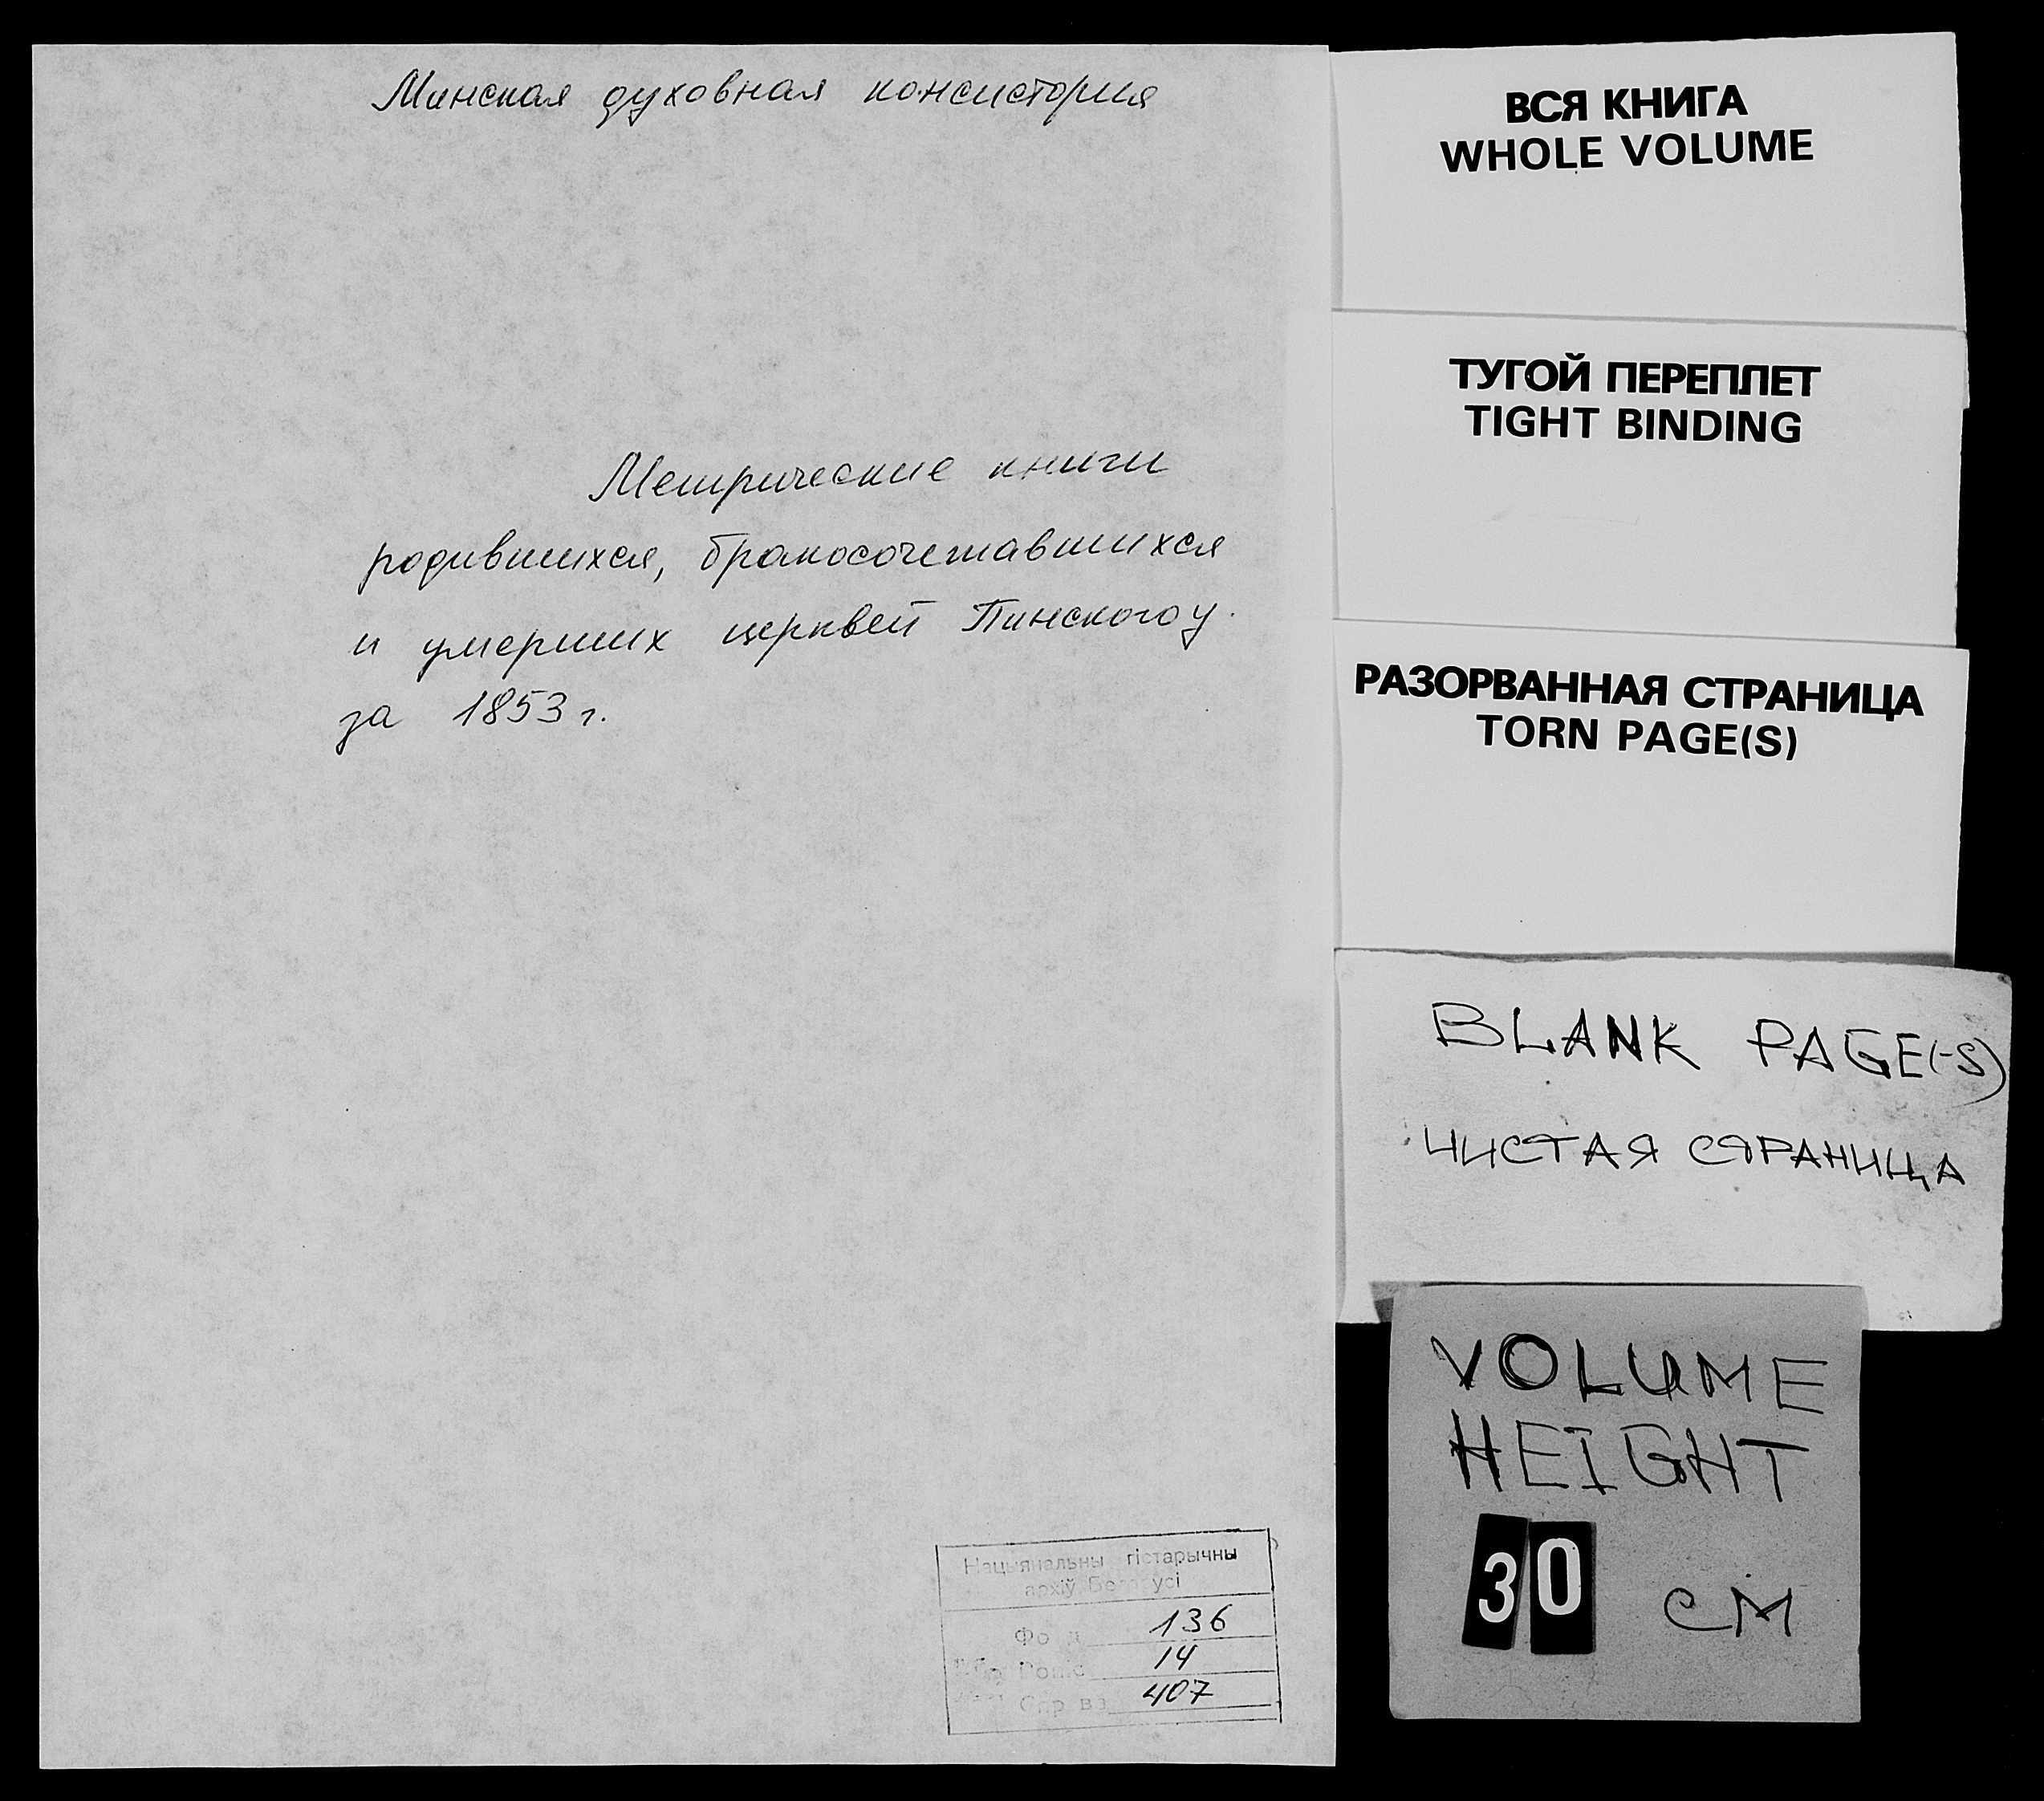 Минская духовная консистория
Метрические книги
родившихся, бракосочетавшихся
и умерших церквей Пинского у.
за 1853 г.
Нацыянальны гістарычны
архіў Беларусі
Фонд 136
Вопіс 14
Справа 407
ВСЯ КНИГА
WHOLE VOLUME
ТУГОЙ ПЕРЕПЛЕТ
TIGHT BINDING
РАЗОРВАННАЯ СТРАНИЦА
TORN PAGE(S)
BLANK PAGE(-S)
ЧИСТАЯ СТРАНИЦА
VOLUME
HEIGHT
30 CM